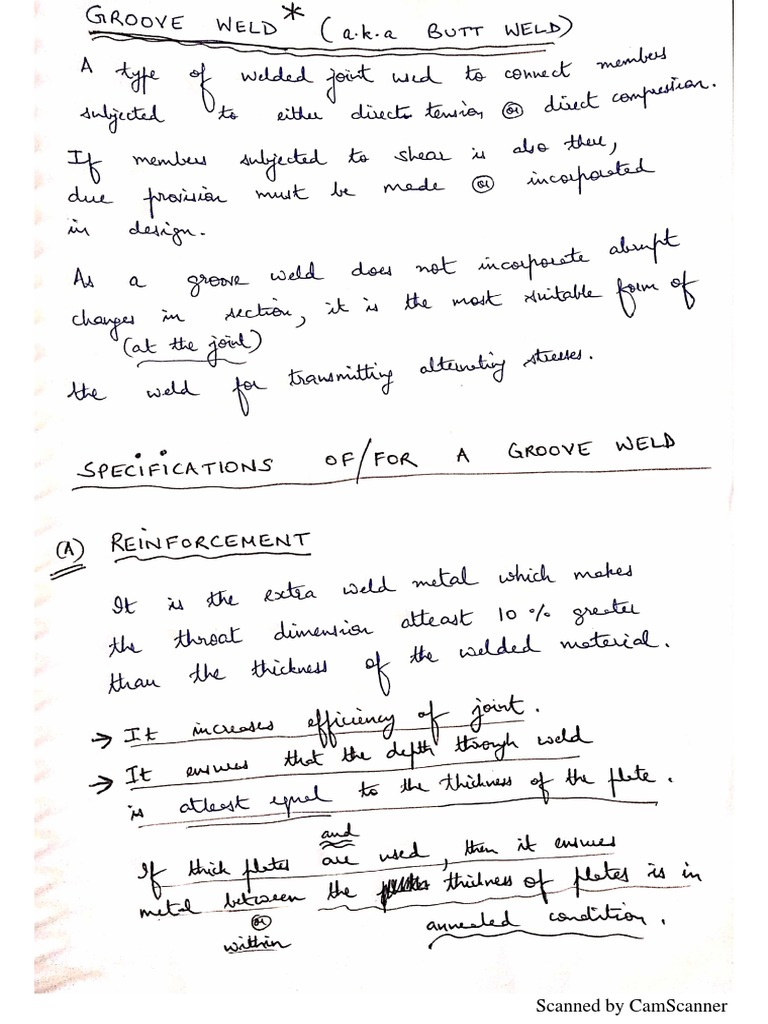 GROOVE WELD* (a.k.a BUTT WELD)
A type of welded joint used to connect members
subjected to either direct tension (or) direct compression.
If members subjected to shear is also there,
due provision must be made (or) incorporated
in design.
As a groove weld does not incorporate abrupt
changes in section, it is the most suitable form of
(at the joint)
the weld for transmitting alternating stresses.
SPECIFICATIONS OF/FOR A GROOVE WELD
(A) REINFORCEMENT
It is the extra weld metal which makes
the throat dimension atleast 10% greater
than the thickness of the welded material.
→ It increases efficiency of joint.
→ It ensures that the depth through weld
is atleast equal to the thickness of the plate.
and
If thick plates are used, then it ensures
metal between the thickness of plates is in
(or)
within
annealed condition.
Scanned by CamScanner